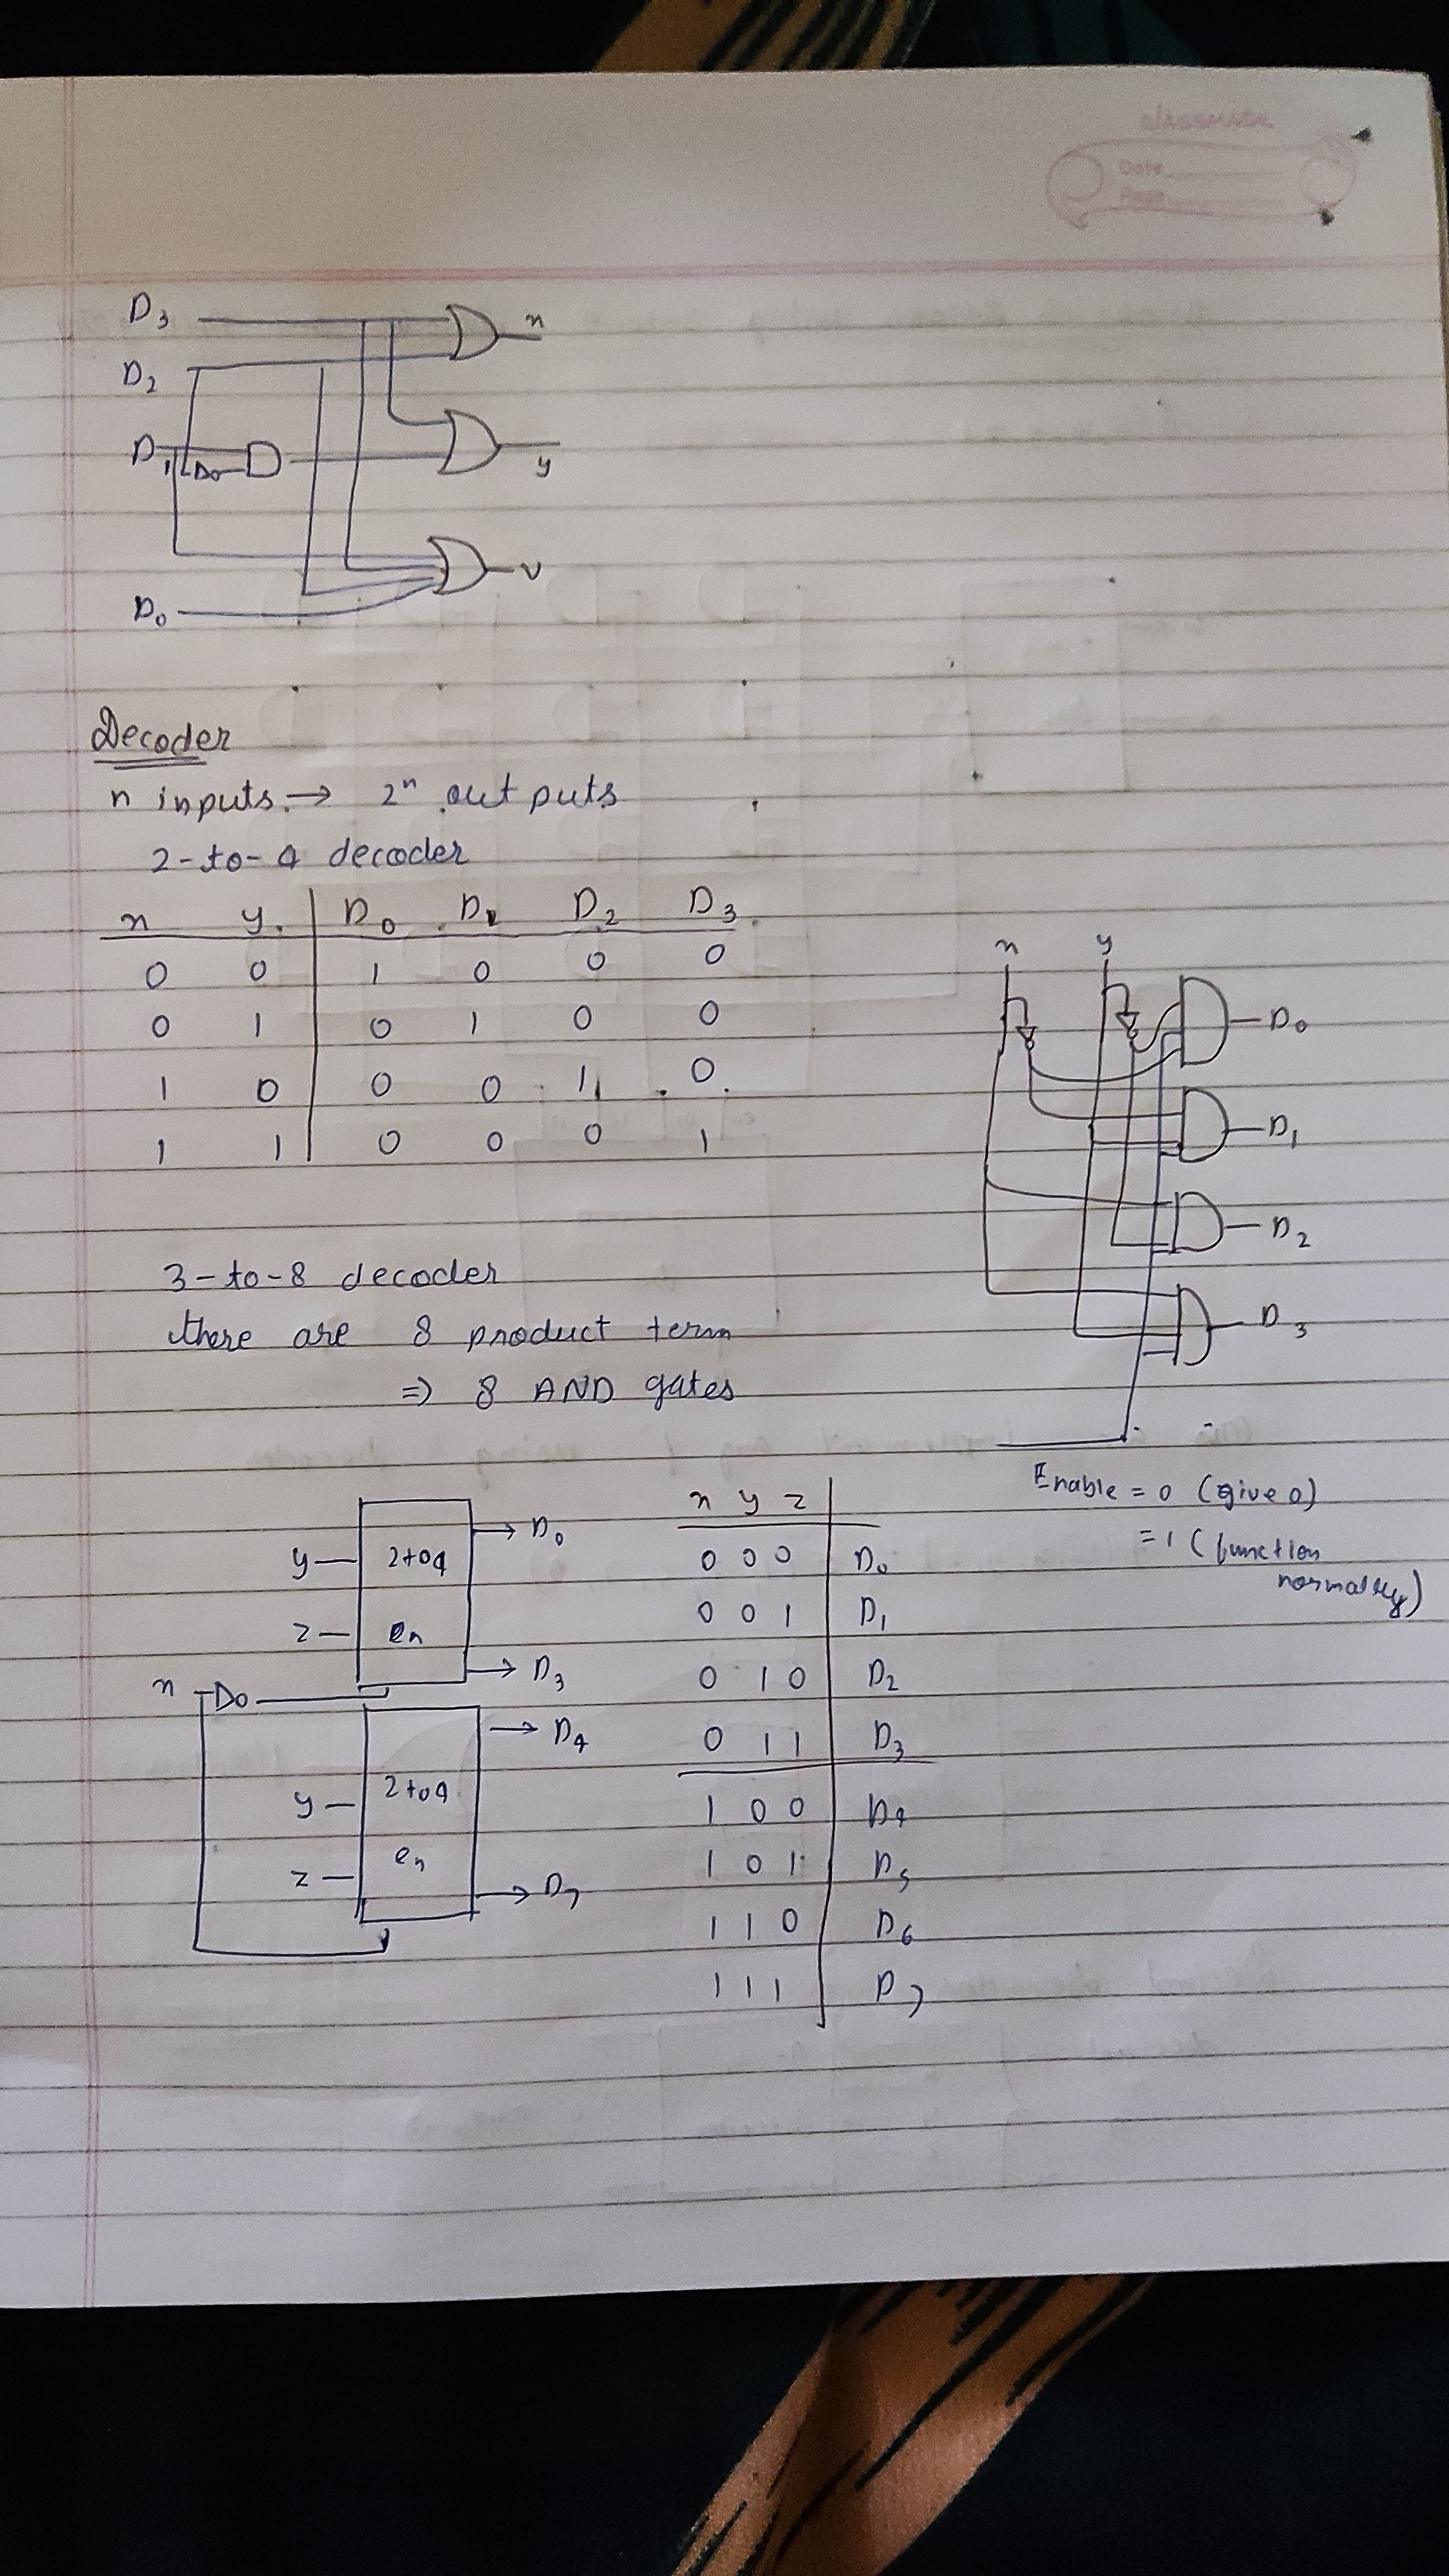 classmate
Date
Page
D3
x
D2
D1
y
v
D0
Decoder
n inputs → 2ⁿ outputs
2-to-4 decoder
x y D0 D1 D2 D3
0 0 1 0 0 0
0 1 0 1 0 0
1 0 0 0 1 0
1 1 0 0 0 1
x y
D0
D1
D2
D3
3-to-8 decoder
there are 8 product term
⇒ 8 AND gates
Enable = 0 (give 0)
= 1 (function
normally)
y 2to4 D0
z en D3
x
D4
y 2to4
z en D7
x y z
0 0 0 D0
0 0 1 D1
0 1 0 D2
0 1 1 D3
1 0 0 D4
1 0 1 D5
1 1 0 D6
1 1 1 D7